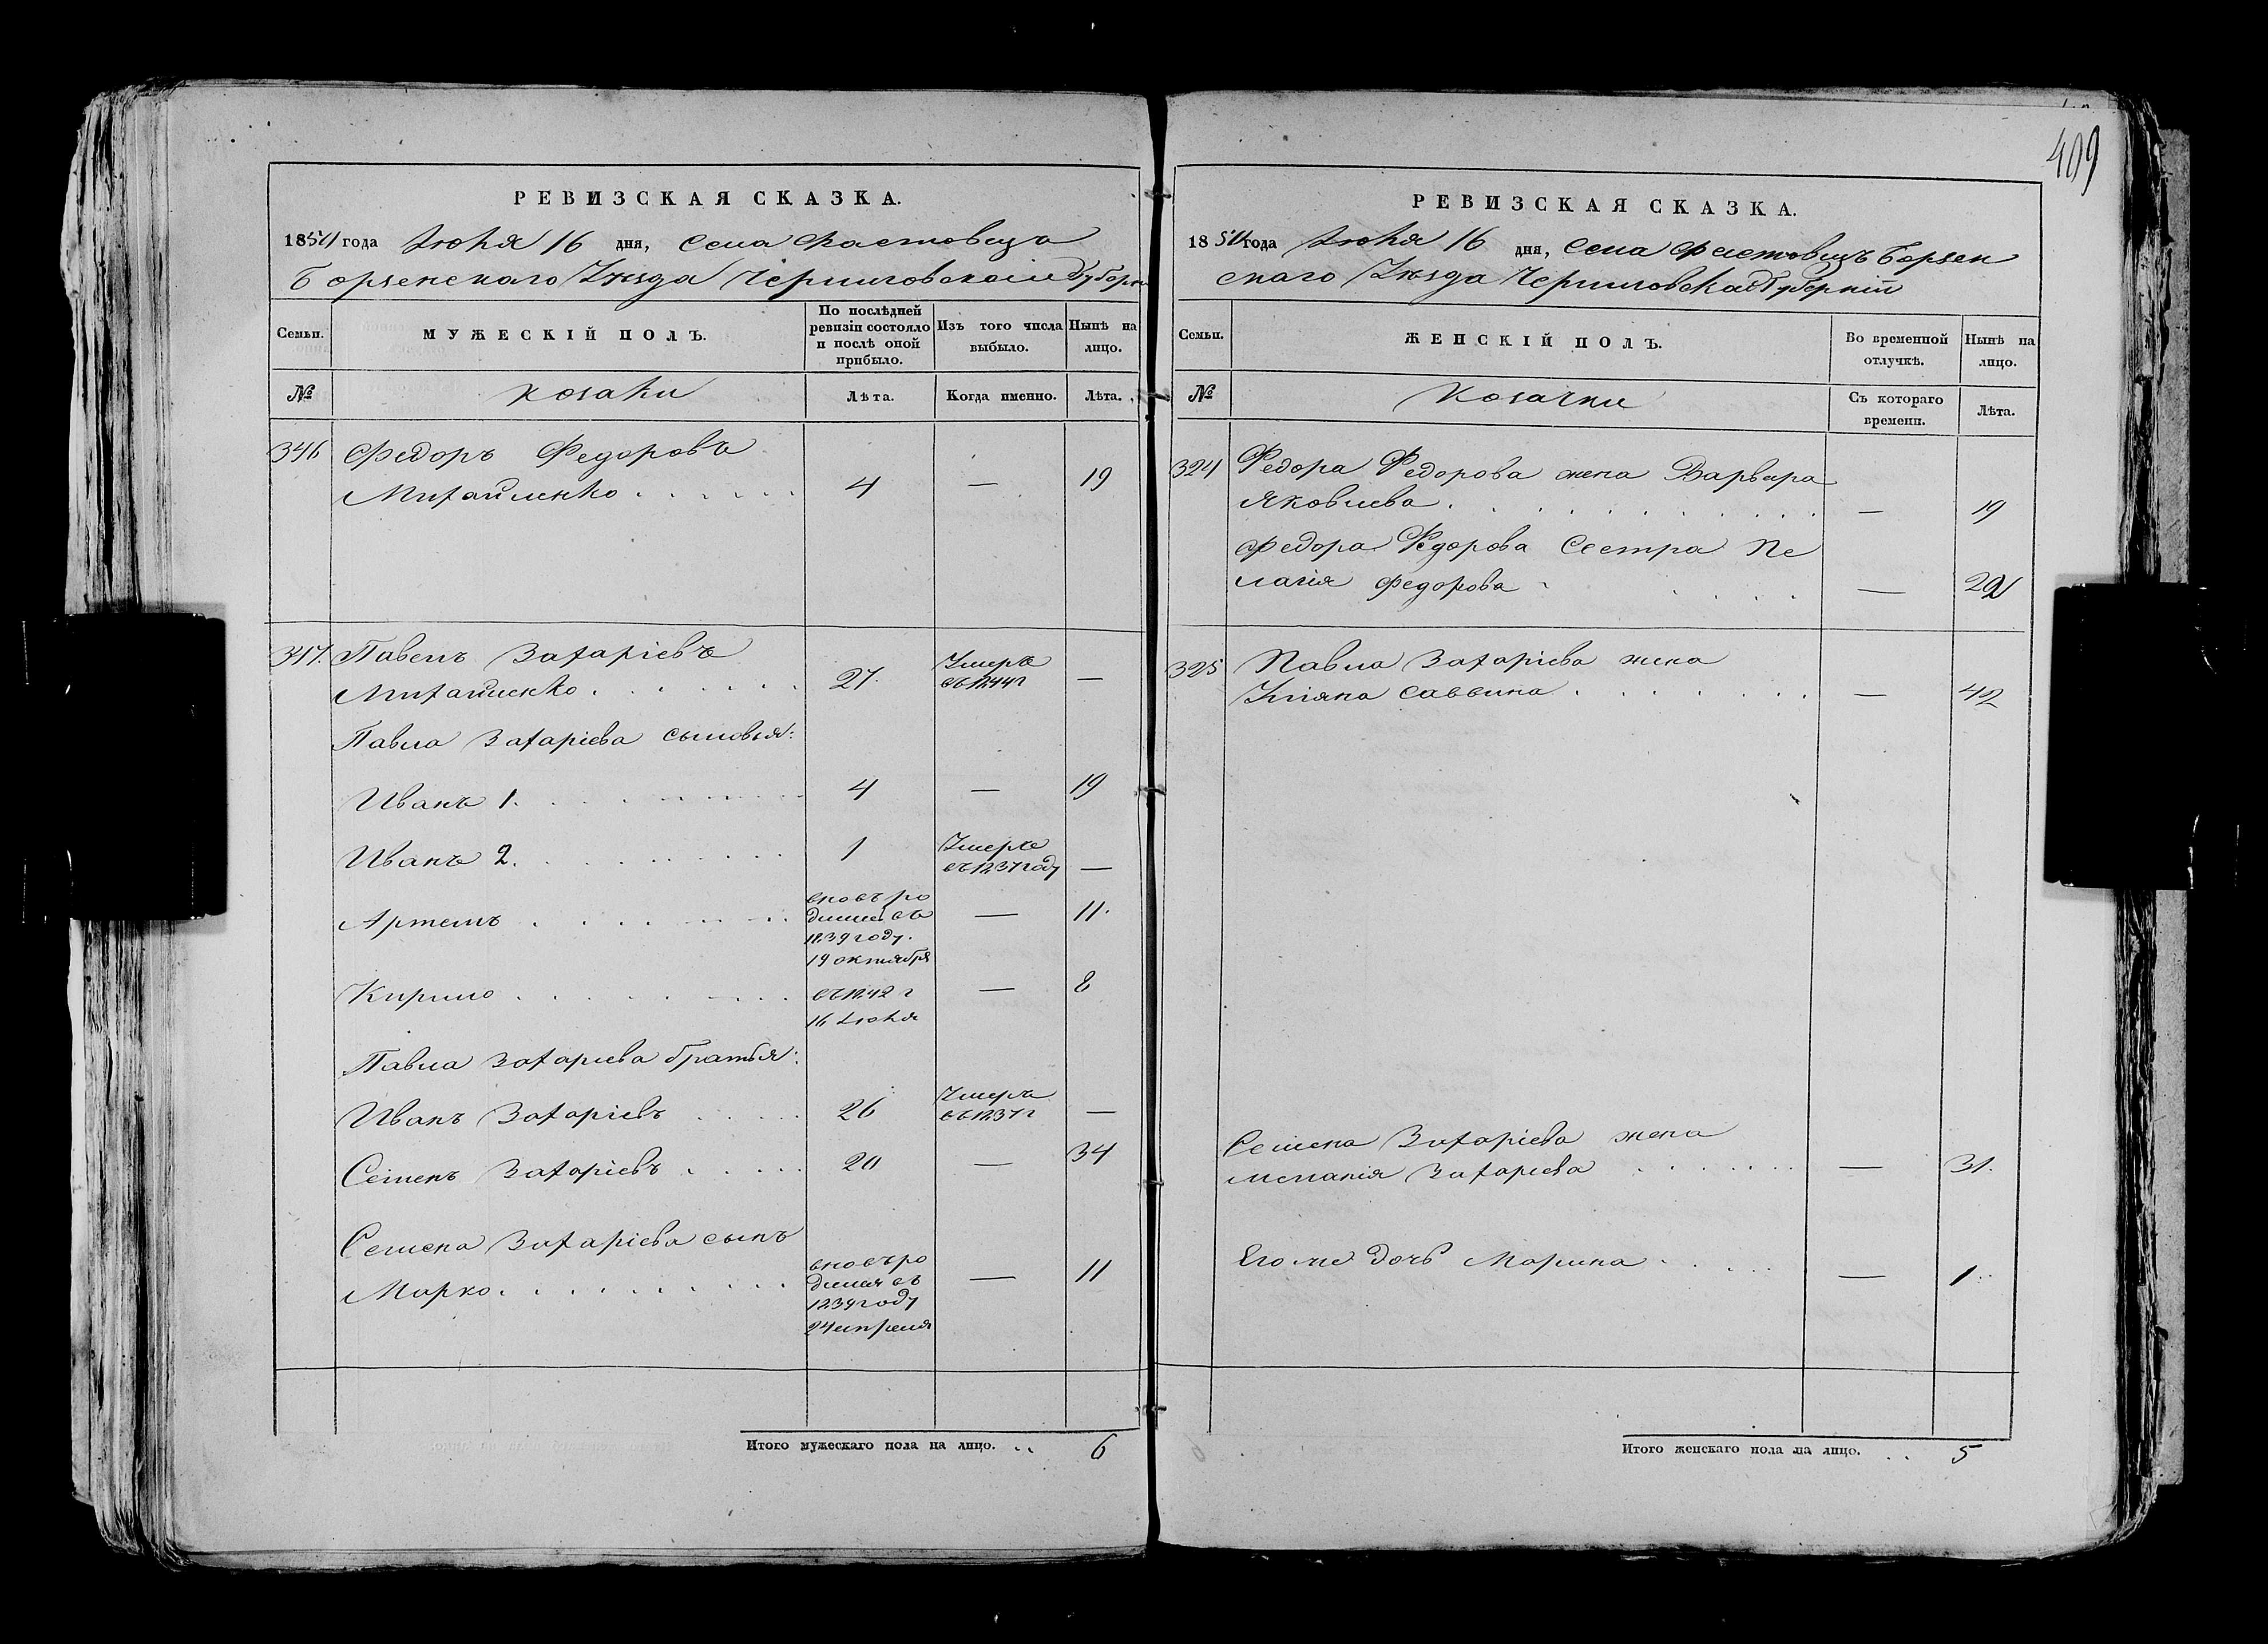 409
РЕВИЗСКАЯ СКАЗКА.
18 года Июня 16 дня, Села Фастовецъ
Борзенскаго Уѣзда Черниговской Губерн
Семьи.
МУЖЕСКІЙ ПОЛЪ.
По послѣдней ревизіи состояло и послѣ оной прибыло.
Изъ того числа выбыло.
Нынѣ на лицо.
№
Козаки
Лѣта.
Когда именно.
Лѣта.
346 Федоръ Федоровъ
Михайленко . . . . . . 4 — 19
347. Павелъ Захаріевъ
Михайленко . . . . . . 27. Умеръ въ 1844 г —
Павла Захаріева сыновья:
Иванъ 1. . . . . . . . 4 — 19
Иванъ 2. . . . . . . . 1 Умеръ въ 1837 году —
Артемъ . . . . . . вновь ро
дился въ — 11.
1839 году.
19 октября
Кирило . . . . . . въ 1842 г — 8
16 Июня
Павла Захаріева братья:
Иванъ Захаріевъ . . . . 26 Умеръ въ 1837 г —
Семенъ Захаріевъ . . . . 20 — 34
Семена Захаріева сынъ
Марко . . . . . . . . вновь ро
дился въ — 11
1839 году
24 апреля
Итого мужескаго пола на лицо. . . 6
РЕВИЗСКАЯ СКАЗКА.
18 года Июня 16 дня, Села Фастовецъ Борзен
скаго Уѣзда Черниговской Губерніи
Семьи.
ЖЕНСКІЙ ПОЛЪ.
Во временной отлучкѣ.
Нынѣ на лицо.
№
Козачки
Съ котораго времени.
Лѣта.
324 Федора Федорова жена Варвара
Яковлева . . . . . . . . . — 19
Федора Федорова Сестра Пе
лагія Федорова . . . . . —
325 Павла Захаріева жена
Уліяна Саввина . . . . . . — 42
Семена Захаріева жена
Меланія Захаріева . . . . . . — 31.
Его же дочь Марина . . . . . — 1.
Итого женскаго пола на лицо. . . 5